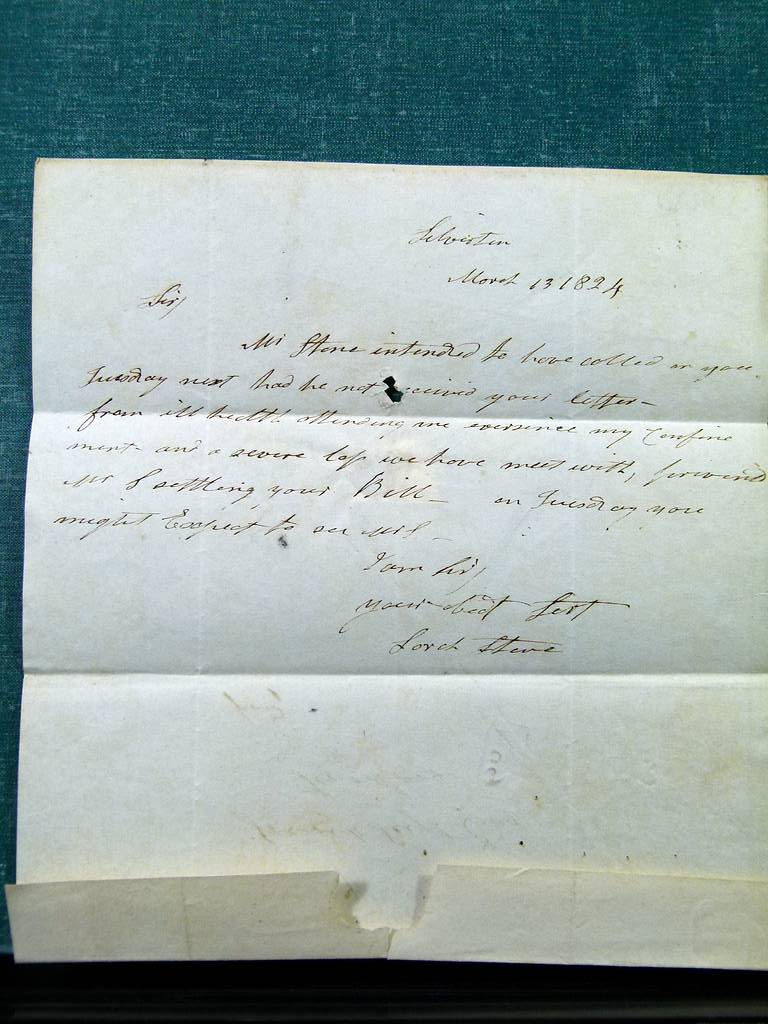 March 13 1824
Sir,
Mr Stone intended to have called on you
Tuesday next had he not received your letter –
from ill health attending me eversince my Confine
ment and a severe loss we have meet with, prevented
Mr S settling your Bill – on Tuesday you
might Expect to see Mr S –
I am Sir,
your obedt Servt
Sarah Stone